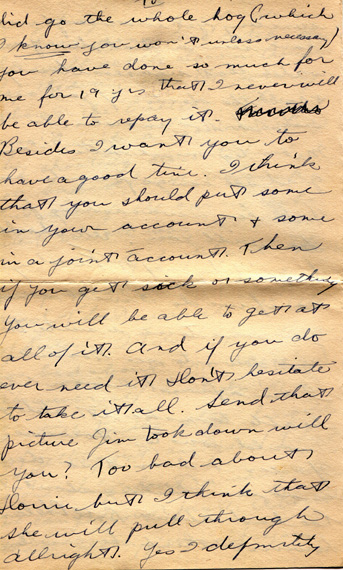 did go the whole hog (which
I know you won't unless necessary)
you have done so much for
me for 19 yrs that I never will
be able to repay it.
Besides I want you to
have a good time. I think
that you should put some
in your account & some
in a joint account. Then
if you get sick or something
you will be able to get at
all of it. And if you do
ever need it don't hesitate
to take it all. Send that
picture Jim took down will
you? Too bad about
but I think that
she will pull through
allright. Yes I definitly